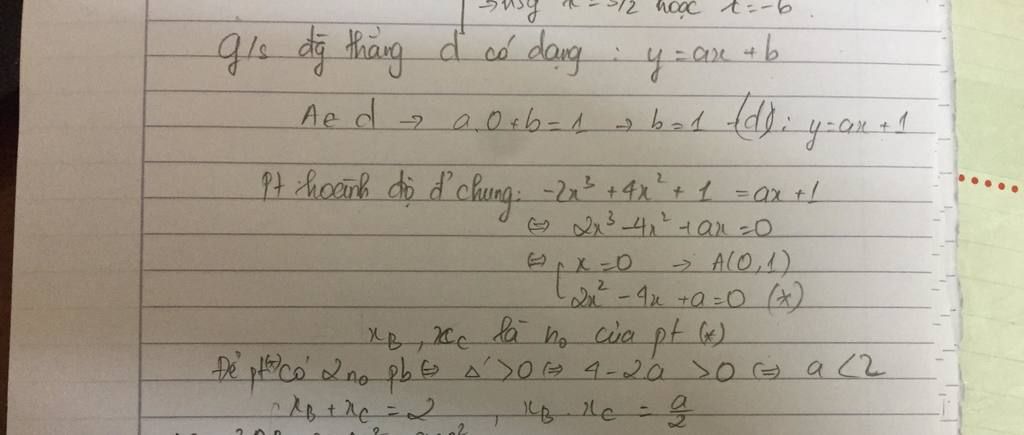 hoặc t = -6.
g/s đg thẳng d có dạng : y = ax + b
A ∈ d → a.0 + b = 1 → b = 1 (d): y = ax + 1
Pt hoành độ đ' chung: -2x³ + 4x² + 1 = ax + 1
⇔ 2x³ - 4x² + ax = 0
⇔ [ x = 0 → A(0,1)
2x² - 4x + a = 0 (*)
x_B, x_C là n₀ của pt (*)
Để pt(*) có 2 n₀ pb ⇔ Δ' > 0 ⇔ 4 - 2a > 0 ⇔ a < 2
x_B + x_C = 2 , x_B . x_C = a/2